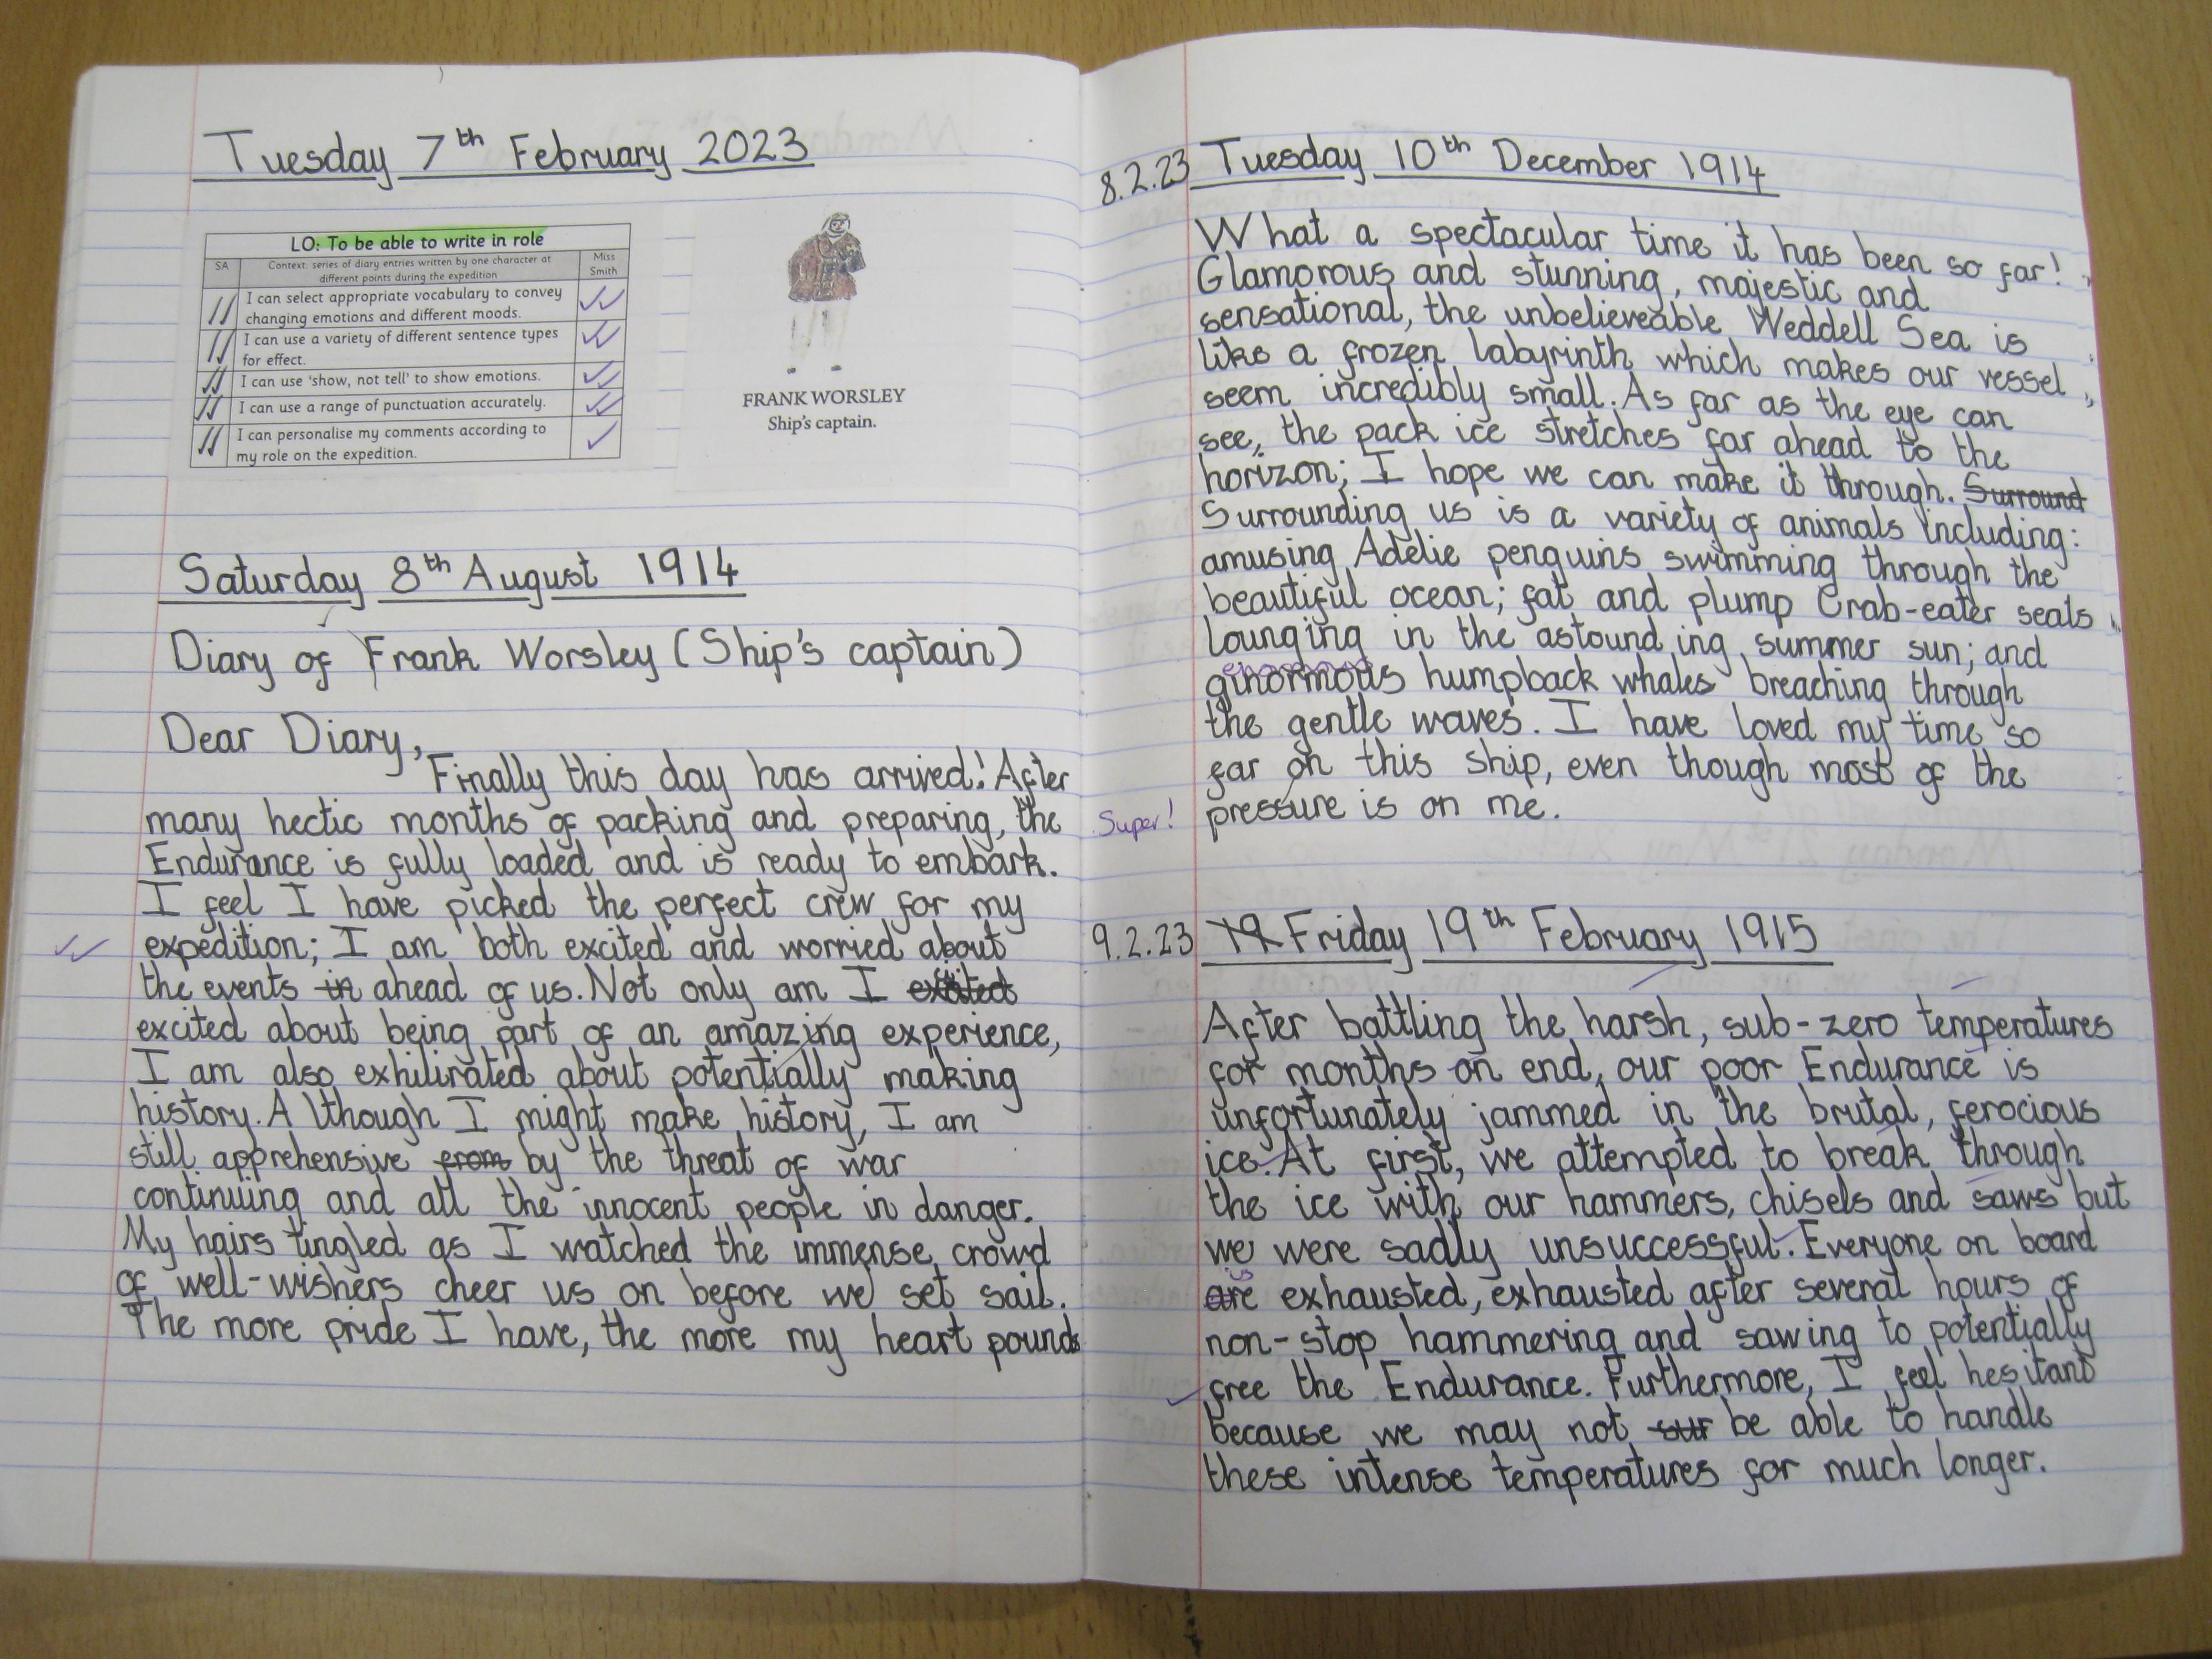 Tuesday 7th February 2023
LO: To be able to write in role
SA
Context: series of diary entries written by one character at
different points during the expedition
Miss
Smith
I can select appropriate vocabulary to convey
changing emotions and different moods.
I can use a variety of different sentence types
for effect.
I can use 'show, not tell' to show emotions.
I can use a range of punctuation accurately.
I can personalise my comments according to
my role on the expedition.
FRANK WORSLEY
Ship's captain.
Saturday 8th August 1914
Diary of Frank Worsley (Ship's captain)
Dear Diary,
Finally this day has arrived! After
many hectic months of packing and preparing, the
Endurance is fully loaded and is ready to embark.
I feel I have picked the perfect crew for my
expedition; I am both excited and worried about
the events in ahead of us. Not only am I
excited about being part of an amazing experience,
I am also exhilirated about potentially making
history. Although I might make history, I am
still apprehensive from by the threat of war
continuing and all the innocent people in danger.
My hairs tingled as I watched the immense crowd
of well-wishers cheer us on before we set sail.
The more pride I have, the more my heart pounds
8.2.23 Tuesday 10th December 1914
What a spectacular time it has been so far!
Glamorous and stunning, majestic and
sensational, the unbelieveable Weddell Sea is
like a frozen labyrinth which makes our vessel
seem incredibly small. As far as the eye can
see, the pack ice stretches far ahead to the
horizon; I hope we can make it through. Surround
Surrounding us is a variety of animals including:
amusing Adélie penguins swimming through the
beautiful ocean; fat and plump Crab-eater seals
lounging in the astounding summer sun; and
ginormous humpback whales breaching through
the gentle waves. I have loved my time so
far on this ship, even though most of the
Super! pressure is on me.
9.2.23 19 Friday 19th February 1915
After battling the harsh, sub-zero temperatures
for months on end, our poor Endurance is
unfortunately jammed in the brutal, ferocious
ice. At first, we attempted to break through
the ice with our hammers, chisels and saws but
we were sadly unsuccessful. Everyone on board
is
are exhausted, exhausted after several hours of
non-stop hammering and sawing to potentially
free the Endurance. Furthermore, I feel hesitant
because we may not sur be able to handle
these intense temperatures for much longer.